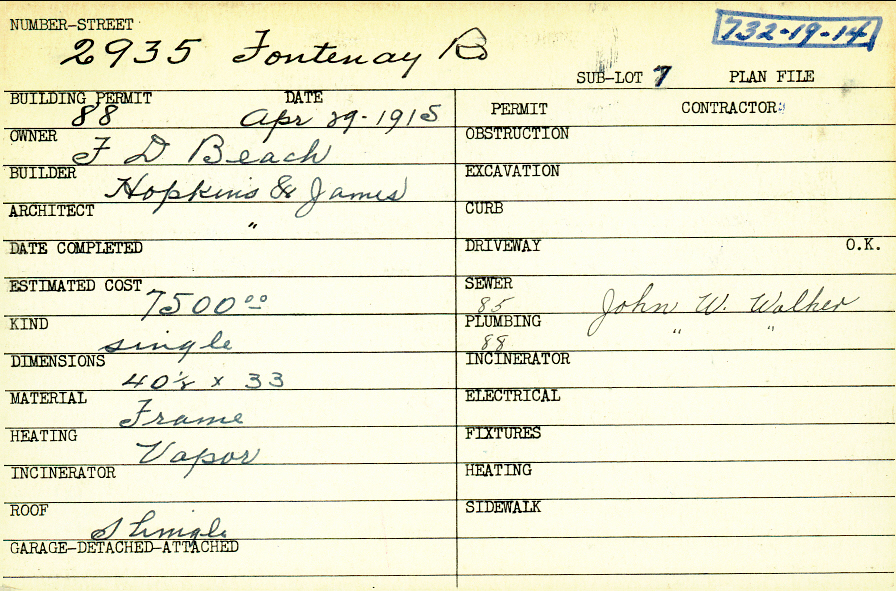 NUMBER-STREET
2935 Fontenay Rd
732-19-14
SUB-LOT 7 PLAN FILE
BUILDING PERMIT DATE
88 Apr 29-1915
OWNER
F D Beach
BUILDER
Hopkins & James
ARCHITECT
"
DATE COMPLETED
ESTIMATED COST
7500 00
KIND
single
DIMENSIONS
40½ x 33
MATERIAL
Frame
HEATING
Vapor
INCINERATOR
ROOF
Shingle
GARAGE-DETACHED-ATTACHED
PERMIT CONTRACTOR:
OBSTRUCTION
EXCAVATION
CURB
DRIVEWAY O.K.
SEWER
85 John W. Walker
PLUMBING
88 " "
INCINERATOR
ELECTRICAL
FIXTURES
HEATING
SIDEWALK